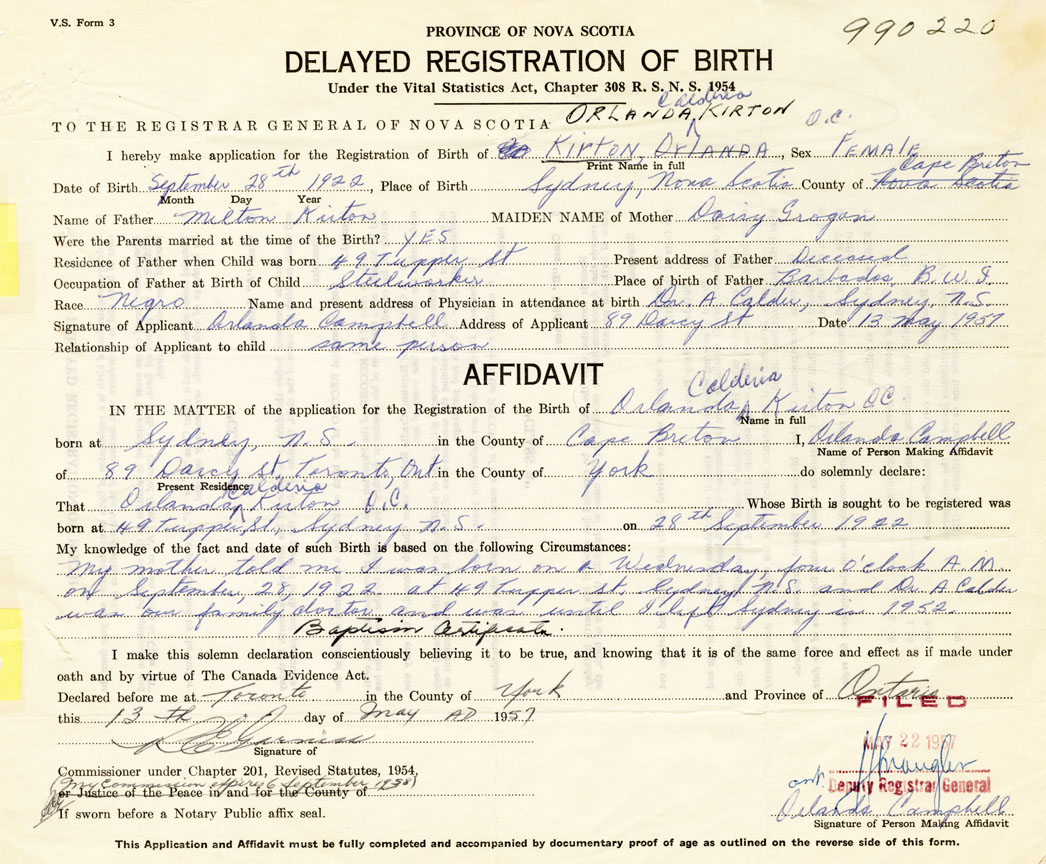 V.S. Form 3
990220
PROVINCE OF NOVA SCOTIA
DELAYED REGISTRATION OF BIRTH
Under the Vital Statistics Act, Chapter 308 R. S. N. S. 1954
Calderia
TO THE REGISTRAR GENERAL OF NOVA SCOTIA ORLANDA KIRTON O.C.
I hereby make application for the Registration of Birth of KIRTON, ORLANDA, Sex FEMALE
Print Name in full
Cape Breton
Date of Birth September 28th 1922, Place of Birth Sydney, Nova Scotia County of Nova Scotia
Month Day Year
Name of Father Milton Kirton MAIDEN NAME of Mother Daisy Grogan
Were the Parents married at the time of the Birth? YES
Residence of Father when Child was born 49 Tupper St Present address of Father Deceased
Occupation of Father at Birth of Child Steelworker Place of birth of Father Barbados, B.W.I.
Race Negro Name and present address of Physician in attendance at birth Dr. A Calder, Sydney, N.S.
Signature of Applicant Orlanda Campbell Address of Applicant 89 Darcy St Date 13 May 1957
Relationship of Applicant to child same person
AFFIDAVIT
Calderia
IN THE MATTER of the application for the Registration of the Birth of Orlanda Kirton OC
Name in full
born at Sydney, N.S. in the County of Cape Breton I, Orlanda Campbell
Name of Person Making Affidavit
of 89 Darcy St, Toronto, Ont in the County of York do solemnly declare:
Present Residence
Calderia
That Orlanda Kirton O.C. Whose Birth is sought to be registered was
born at 49 Tupper St, Sydney N.S. on 28th September 1922
My knowledge of the fact and date of such Birth is based on the following Circumstances:
My mother told me I was born on a Wednesday, four O'clock A M
on September, 28, 1922 at 49 Tupper St. Sydney N.S. and Dr. A Calder
was our family doctor and was until I left Sydney in 1952.
Baptism Certificate.
I make this solemn declaration conscientiously believing it to be true, and knowing that it is of the same force and effect as if made under
oath and by virtue of The Canada Evidence Act.
Declared before me at Toronto in the County of York and Province of Ontario
FILED
this 13th day of May AD 1957
MAY 22 1957
Signature of
Commissioner under Chapter 201, Revised Statutes, 1954,
(My Commission expires 6 September 1958)
or Justice of the Peace in and for the County of
Deputy Registrar General
Orlanda Campbell
If sworn before a Notary Public affix seal.
Signature of Person Making Affidavit
This Application and Affidavit must be fully completed and accompanied by documentary proof of age as outlined on the reverse side of this form.